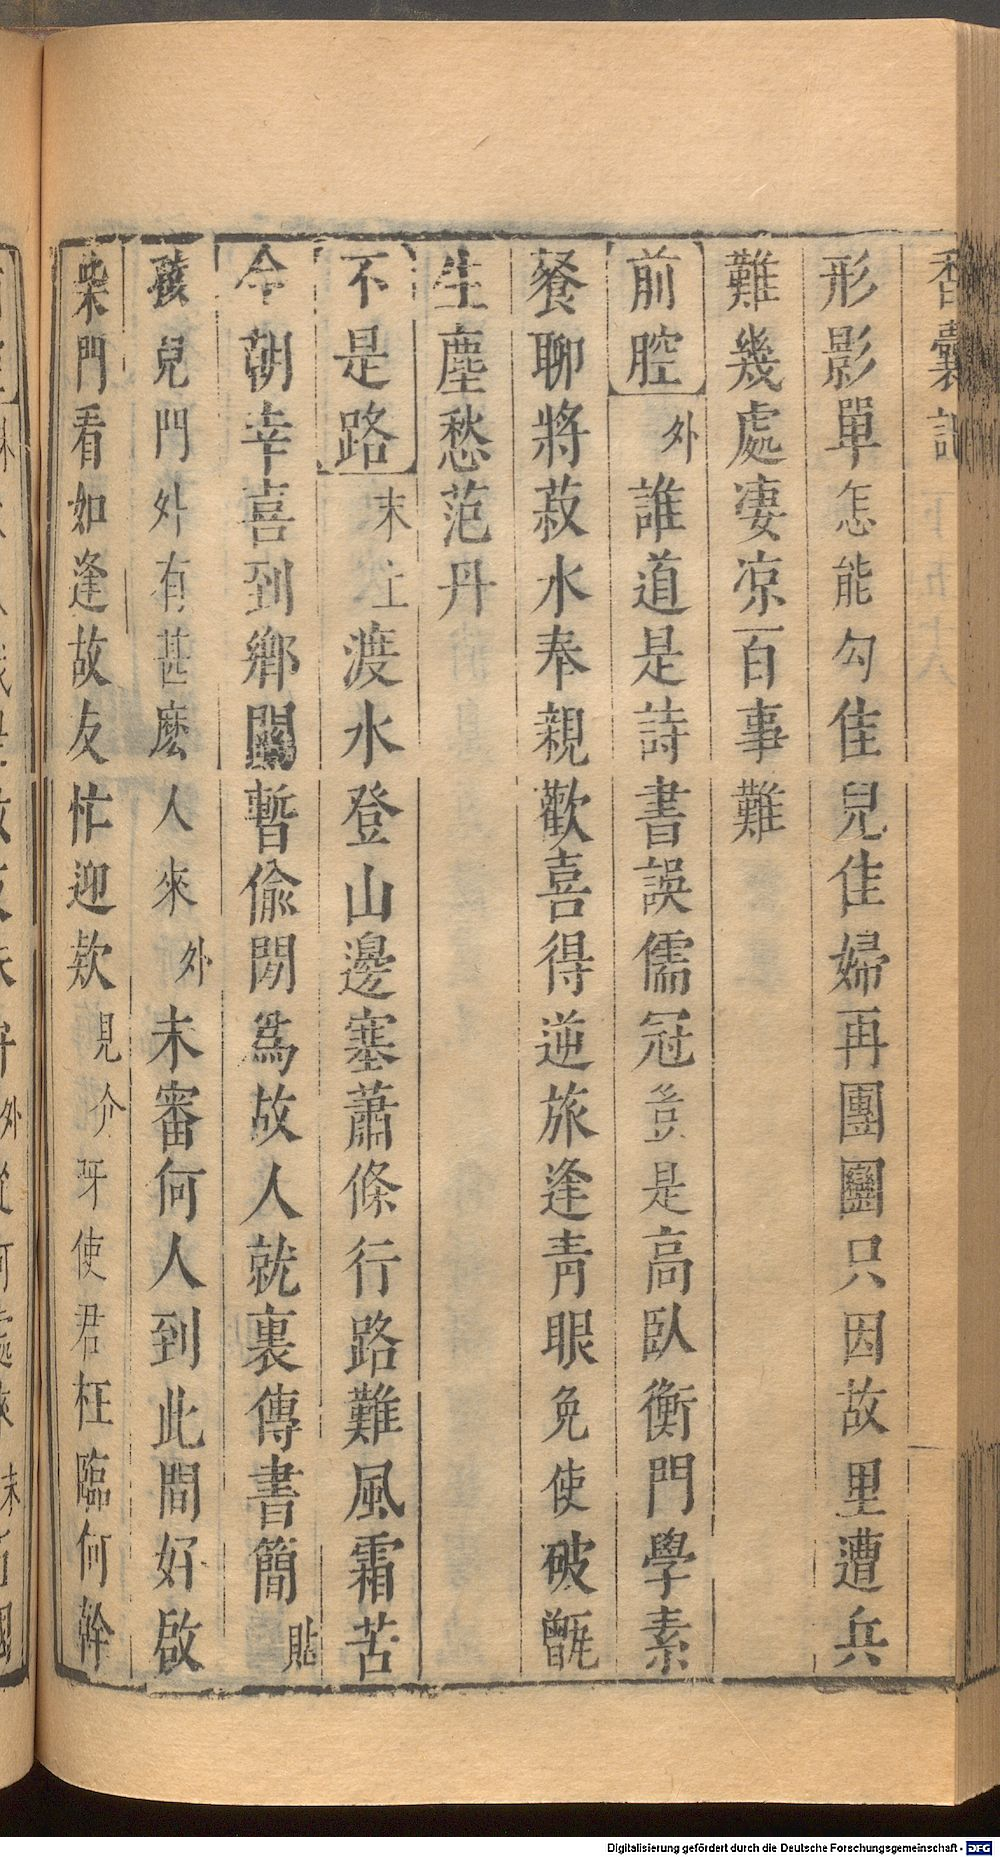 香囊記
形影單怎能勾佳兒佳婦再團圞只因故里遭兵
難幾處凄凉百事難
前腔 外 誰道是詩書誤儒冠豈是高臥衡門學素
餐聊將菽水奉親歡喜得逆旅逢青眼免使破甑
生塵愁范丹
不是路 末上 渡水登山邊塞蕭條行路難風霜苦
今朝幸喜到鄉關暫偷閒爲故人就裏傳書簡 貼
孩兒門外有甚麽人來 外 未審何人到此間好啟
柴門看如逢故友忙迎欵 見介 呀使君枉臨何幹
Digitalisierung gefördert durch die Deutsche Forschungsgemeinschaft - DFG